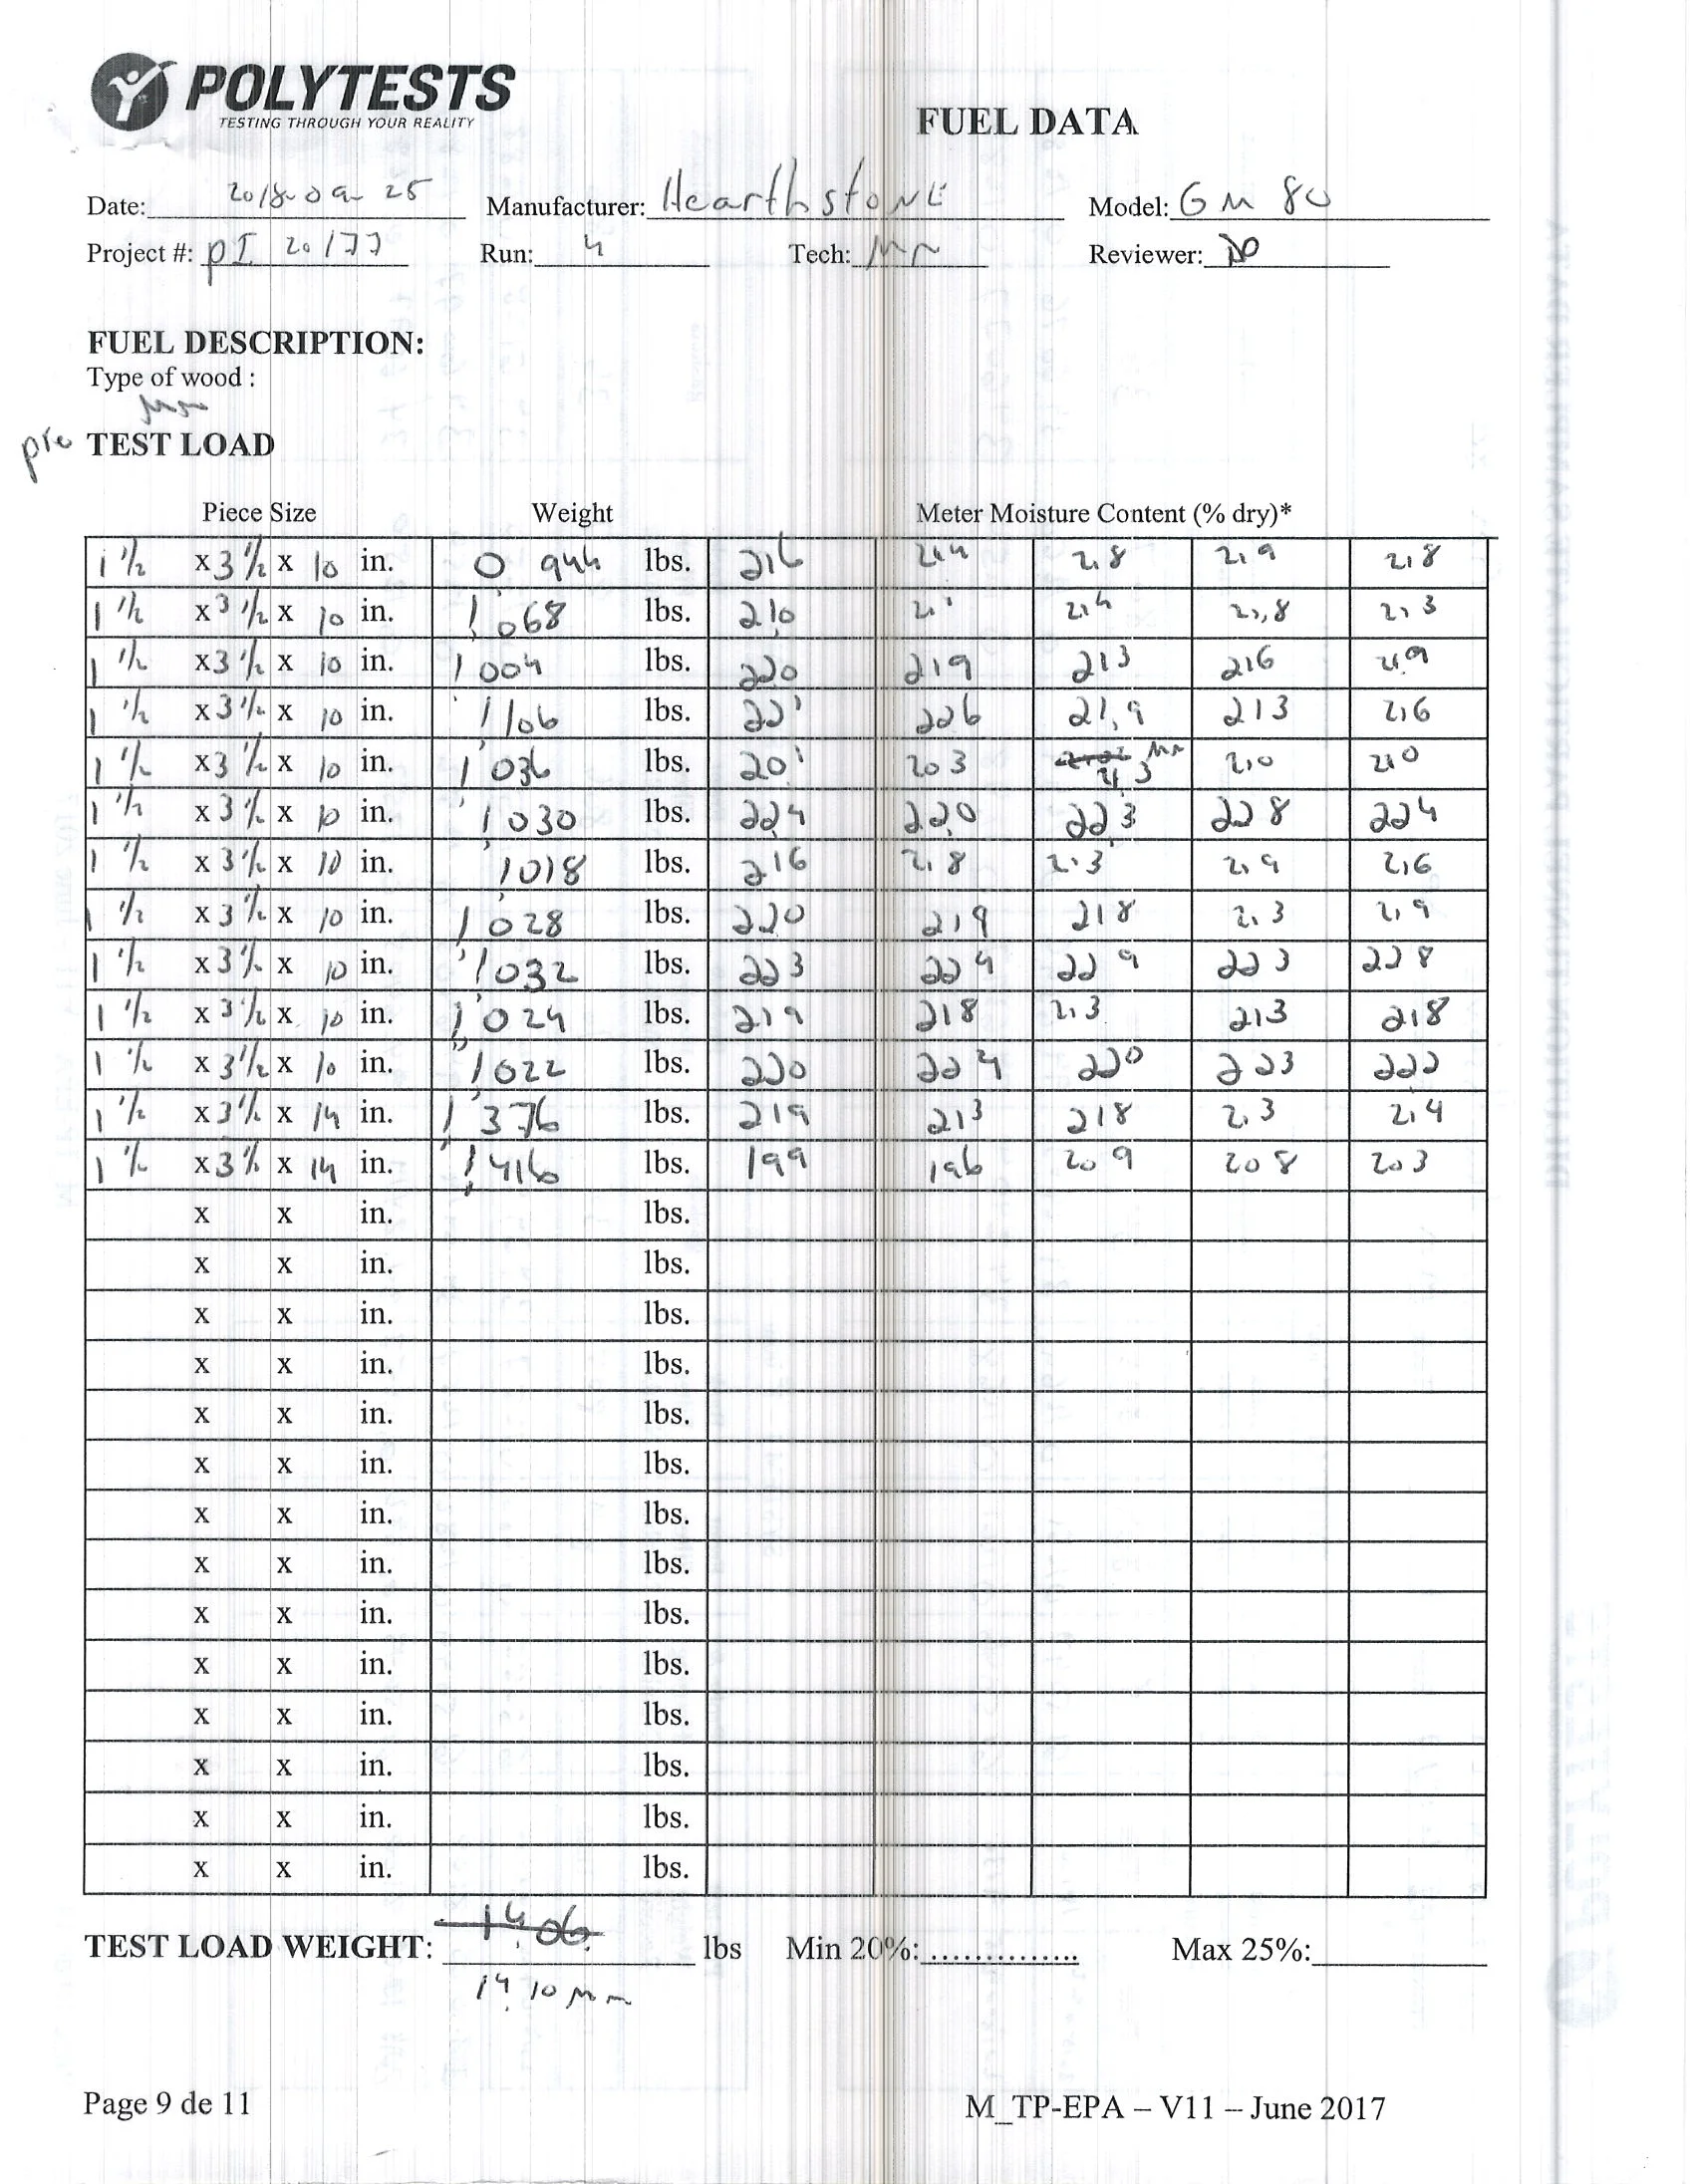 POLYTESTS
TESTING THROUGH YOUR REALITY
FUEL DATA
Date: 2018-09-25 Manufacturer: HearthstoNE Model: GM 80
Project #: pI 20177 Run: 4 Tech: MN Reviewer: DP
FUEL DESCRIPTION:
Type of wood :
pre TEST LOAD
Piece Size Weight Meter Moisture Content (% dry)*
1 1/2 x 3 1/2 x 10 in. 0 944 lbs. 216 21,4 21,8 21,9 21,8
1 1/2 x 3 1/2 x 10 in. 1,068 lbs. 210 21,1 21,4 21,8 21,3
1 1/2 x 3 1/2 x 10 in. 1,004 lbs. 220 219 213 216 21,9
1 1/2 x 3 1/2 x 10 in. 1,106 lbs. 221 226 21,9 213 21,6
1 1/2 x 3 1/2 x 10 in. 1,036 lbs. 201 203 21,3 21,0 21,0
1 1/2 x 3 1/2 x 10 in. 1,030 lbs. 22,4 22,0 22,3 228 224
1 1/2 x 3 1/2 x 10 in. 1,018 lbs. 216 21,8 21,3 21,9 21,6
1 1/2 x 3 1/2 x 10 in. 1,028 lbs. 220 219 218 21,3 21,9
1 1/2 x 3 1/2 x 10 in. 1,032 lbs. 223 224 229 223 228
1 1/2 x 3 1/2 x 10 in. 1,024 lbs. 219 218 21,3 213 218
1 1/2 x 3 1/2 x 10 in. 1,022 lbs. 220 224 220 223 222
1 1/2 x 3 1/2 x 14 in. 1,376 lbs. 219 213 218 21,3 21,4
1 1/2 x 3 1/2 x 14 in. 1,416 lbs. 199 196 209 208 203
x x in. lbs.
x x in. lbs.
x x in. lbs.
x x in. lbs.
x x in. lbs.
x x in. lbs.
x x in. lbs.
x x in. lbs.
x x in. lbs.
x x in. lbs.
x x in. lbs.
x x in. lbs.
x x in. lbs.
x x in. lbs.
TEST LOAD WEIGHT: 14,06 lbs Min 20%: .............. Max 25%:
14,10 MN
Page 9 de 11 M_TP-EPA – V11 – June 2017